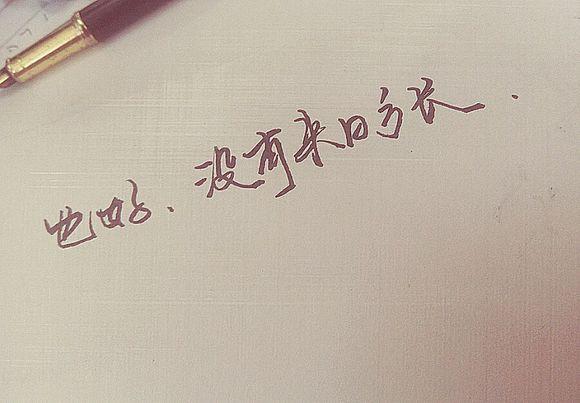 也好、没有来日方长.